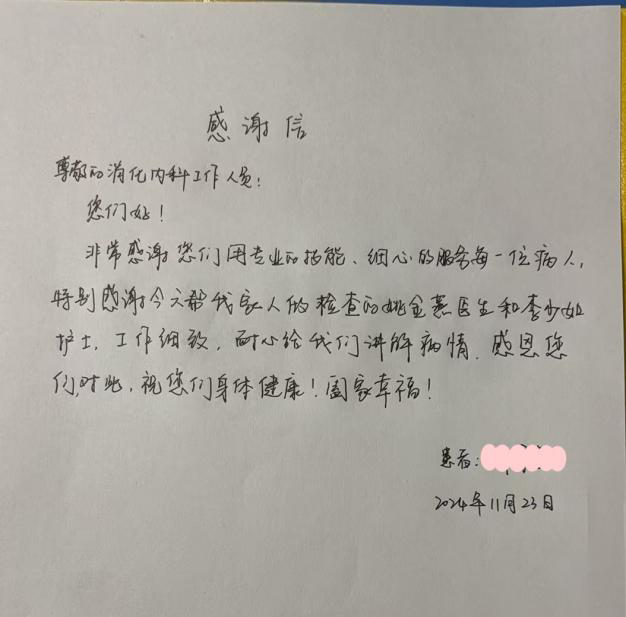 感谢信
尊敬的消化内科工作人员:
您们好!
非常感谢您们用专业的技能、细心的服务每一位病人,
特别感谢今天帮我家人做检查的姚金燕医生和李少如
护士,工作细致,耐心给我们讲解病情,感恩您
们,对此,祝您们身体健康!阖家幸福!
患者:
2024年11月23日